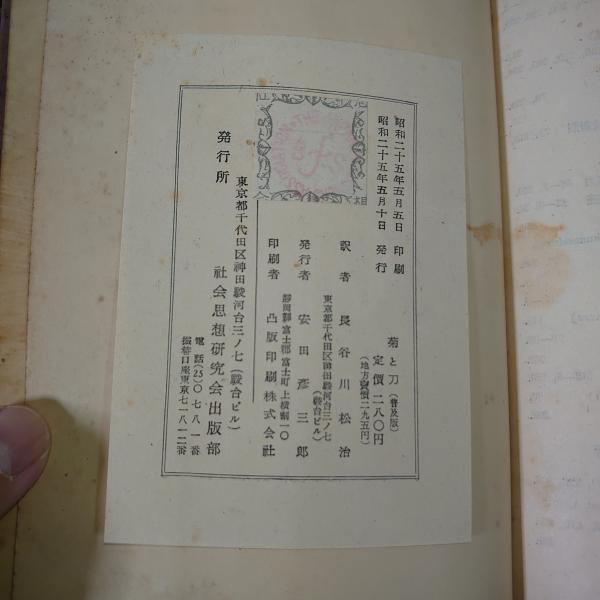 昭和二十五年五月五日 印刷
昭和二十五年五月十日 発行
菊と刀(普及版)
定価二八〇円
(地方売価二九五円)
訳者 長谷川松治
東京都千代田区神田駿河台三ノ七
(駿台ビル)
発行者 安田彦三郎
静岡県富士郡富士町上横割一〇
印刷者 凸版印刷株式会社
発行所
東京都千代田区神田駿河台三ノ七(駿台ビル)
社会思想研究会出版部
電話(25)〇七八一番
振替口座東京七一八一二番